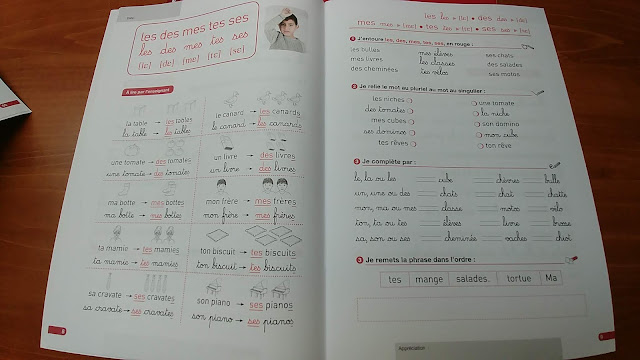 les des mes tes ses
les des mes tes ses
À lire par l'enseignant
la table → les tables
la table → les tables
le canard → les canards
le canard → les canards
une tomate → des tomates
une tomate → des tomates
un livre → des livres
un livre → des livres
ma botte → mes bottes
ma botte → mes bottes
mon frère → mes frères
mon frère → mes frères
ta mamie → tes mamies
ta mamie → tes mamies
ton biscuit → tes biscuits
ton biscuit → tes biscuits
sa cravate → ses cravates
sa cravate → ses cravates
son piano → ses pianos
son piano → ses pianos
8
J'entoure les, des, mes, tes, ses, en rouge :
les bulles mes élèves ses chats
mes livres les classes des salades
des cheminées tes vélos ses motos
Je relie le mot au pluriel au mot au singulier :
les niches une tomate
des tomates la niche
mes cubes son domino
ses dominos mon cube
tes rêves ton rêve
Je complète par :
le, la ou les cube chèvres bulle
un, une ou des chats chat chatte
mon, ma ou mes classe motos vélo
ton, ta ou tes élèves livre brosse
sa, son ou ses cheminée vaches
3 Je remets la phrase dans l'ordre :
tes mange salades. tortue Ma
Appréciation :